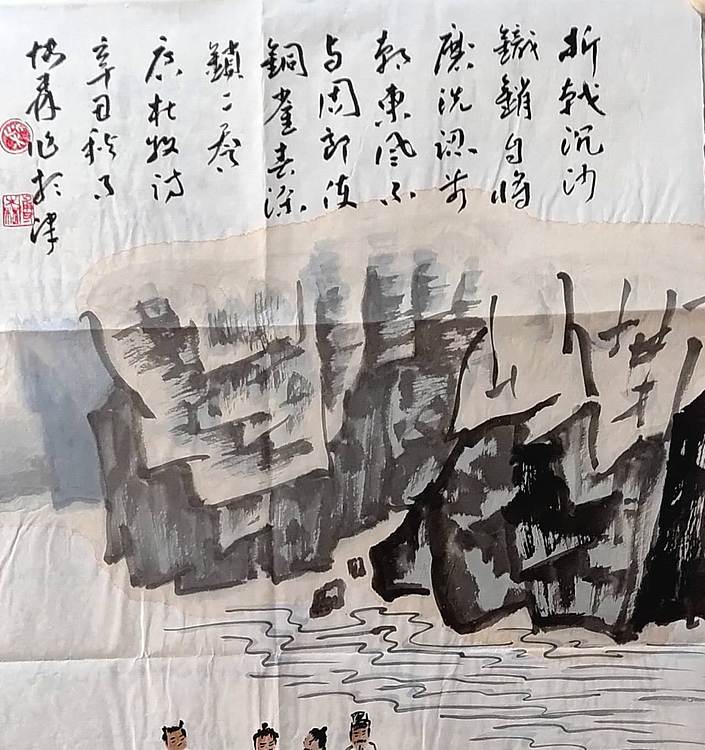 折戟沉沙
鐵銷自將
磨洗認前
朝東風不
与周郎便
銅雀春深
鎖二乔
唐杜牧诗
辛丑秋月
作於津